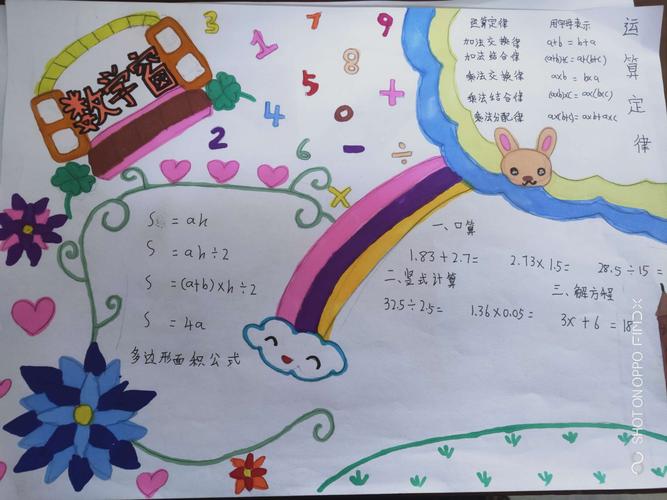 数学窗
3
1
7
9
8
5
6
4
0
+
2
6
-
÷
×
运算定律
运算定律 用字母表示
加法交换律 a+b=b+a
加法结合律 (a+b)+c=a+(b+c)
乘法交换律 a×b=b×a
乘法结合律 (a×b)×c=a×(b×c)
乘法分配律 a×(b+c)=a×b+a×c
S=ah
S=ah÷2
S=(a+b)×h÷2
S=4a
多边形面积公式
一、口算
1.83+2.7= 2.73×1.5= 28.5÷15=
二、竖式计算
32.5÷2.5= 1.36×0.05=
三、解方程
3x+6=18
SHOTONOPPO FINDX